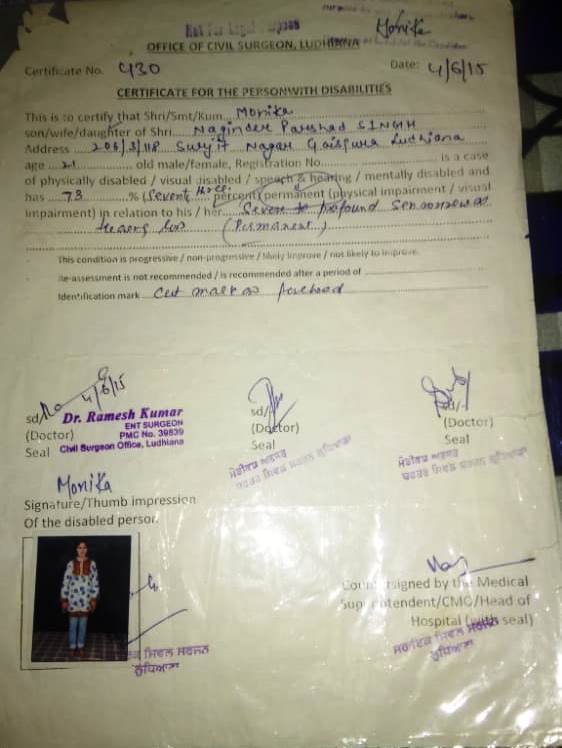 Not For Legal Purpose
Monika
OFFICE OF CIVIL SURGEON, LUDHIANA
Certificate No. 430
Date: 4/6/15
CERTIFICATE FOR THE PERSONWITH DISABILITIES
This is to certify that Shri/Smt/Kum Monika
son/wife/daughter of Shri Naginder Parshad SINGH
Address 206/3/118 Surjit Nagar Gaispura Ludhiana
age 21 old male/female, Registration No. is a case
of physically disabled / visual disabled / speech & hearing / mentally disabled and
has 73 % (Seventy three percent (permanent (physical impairment / visual
impairment) in relation to his / her Severe to profound Sensorineural
hearing loss (Permanent)
This condition is progressive / non-progressive / likely improve / not likely to improve.
Re-assessment is not recommended / is recommended after a period of
Identification mark Cut mark on forehead
4/6/15
sd/
Dr. Ramesh Kumar
ENT SURGEON
PMC No. 39839
Civil Surgeon Office, Ludhiana
(Doctor)
Seal
sd/-
(Doctor)
Seal
ਮੈਡੀਕਲ ਅਫਸਰ
ਦਫਤਰ ਸਿਵਲ ਸਰਜਨ ਲੁਧਿਆਣਾ
sd/-
(Doctor)
Seal
ਮੈਡੀਕਲ ਅਫਸਰ
ਦਫਤਰ ਸਿਵਲ ਸਰਜਨ ਲੁਧਿਆਣਾ
Monika
Signature/Thumb impression
Of the disabled person.
ਸਹਾਇਕ ਸਿਵਲ ਸਰਜਨ
ਲੁਧਿਆਣਾ
Countersigned by the Medical
Superintendent/CMO/Head of
Hospital (with seal)
ਸਹਾਇਕ ਸਿਵਲ ਸਰਜਨ
ਲੁਧਿਆਣਾ